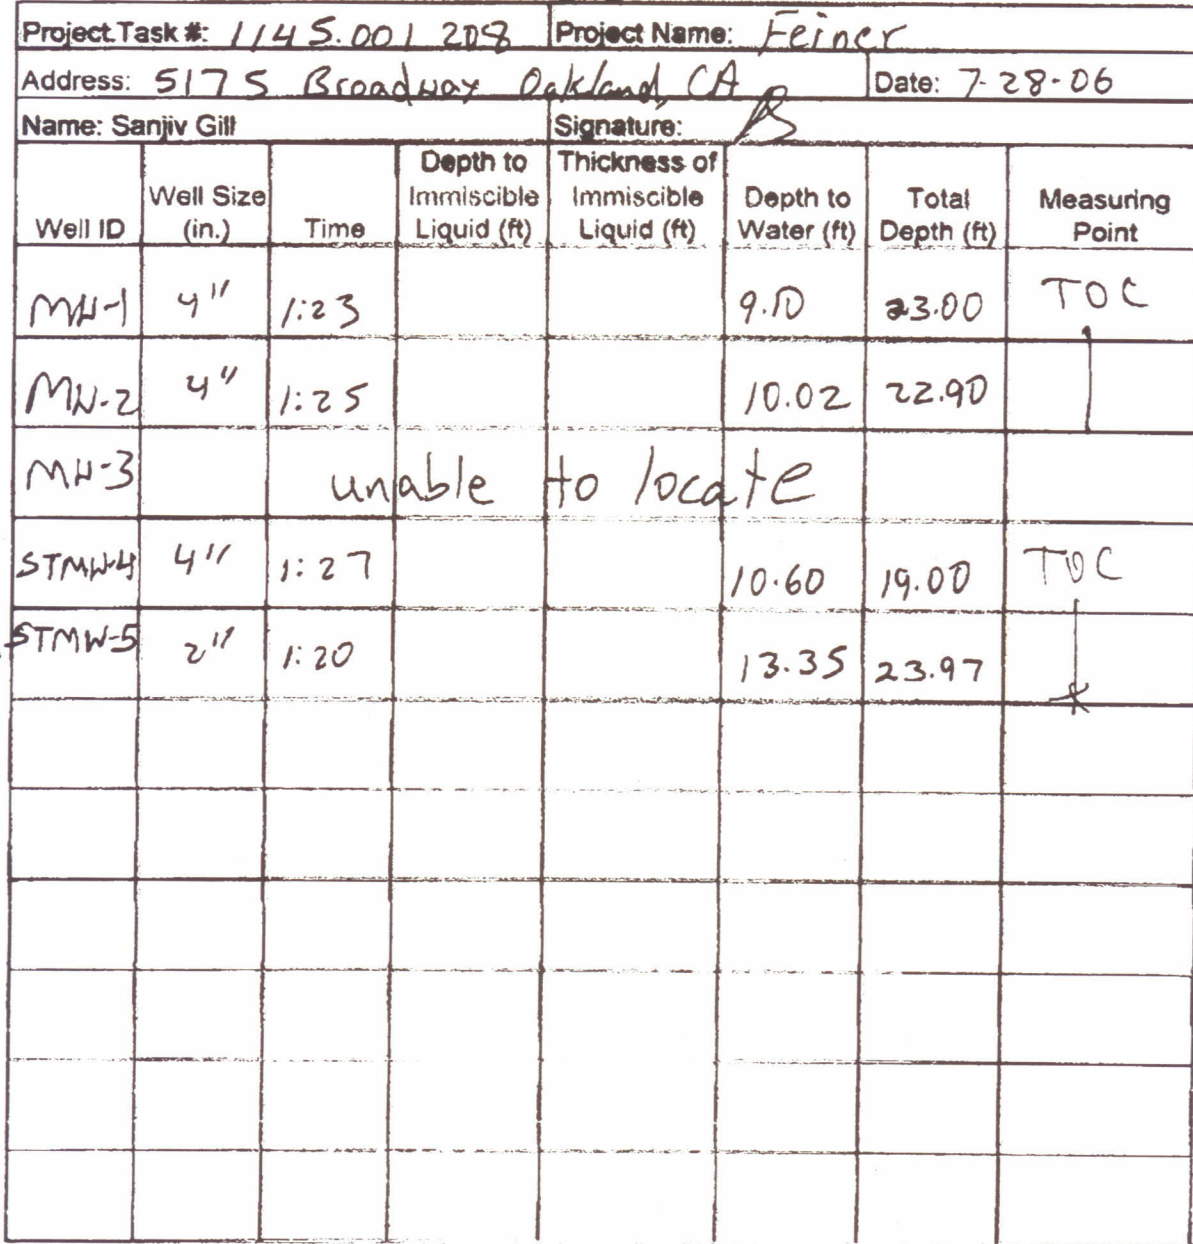 Project.Task #: 1145.001 208 Project Name: Feiner
Address: 5175 Broadway Oakland, CA Date: 7-28-06
Name: Sanjiv Gill Signature:
Well ID Well Size (in.) Time Depth to Immiscible Liquid (ft) Thickness of Immiscible Liquid (ft) Depth to Water (ft) Total Depth (ft) Measuring Point
MW-1 4" 1:23 9.10 23.00 TOC
MW-2 4" 1:25 10.02 22.90
MW-3 unable to locate
STMW-4 4" 1:27 10.60 19.00 TOC
STMW-5 2" 1:20 13.35 23.97